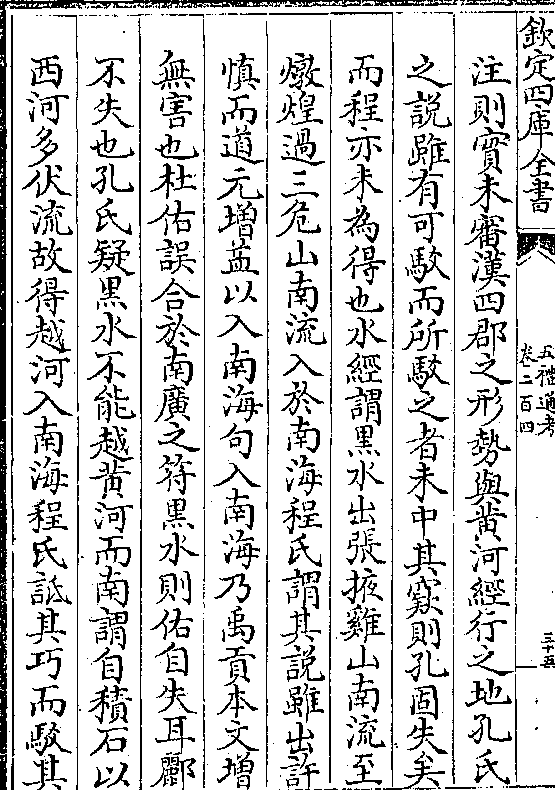 欽定四庫全書
五禮通考
卷二百四
三十五
注則實未審漢四郡之形勢與黃河經行之地孔氏
之說雖有可駁而所駁之者未中其窾則孔固失矣
而程亦未為得也水經謂黑水出張掖雞山南流至
燉煌過三危山南流入於南海程氏謂其說雖出許
慎而道元增益以入南海句入南海乃禹貢本文增
無害也杜佑誤合於南廣之符黑水則佑自失耳酈
不失也孔氏疑黑水不能越黃河而南謂自積石以
西河多伏流故得越河入南海程氏詆其巧而駁其